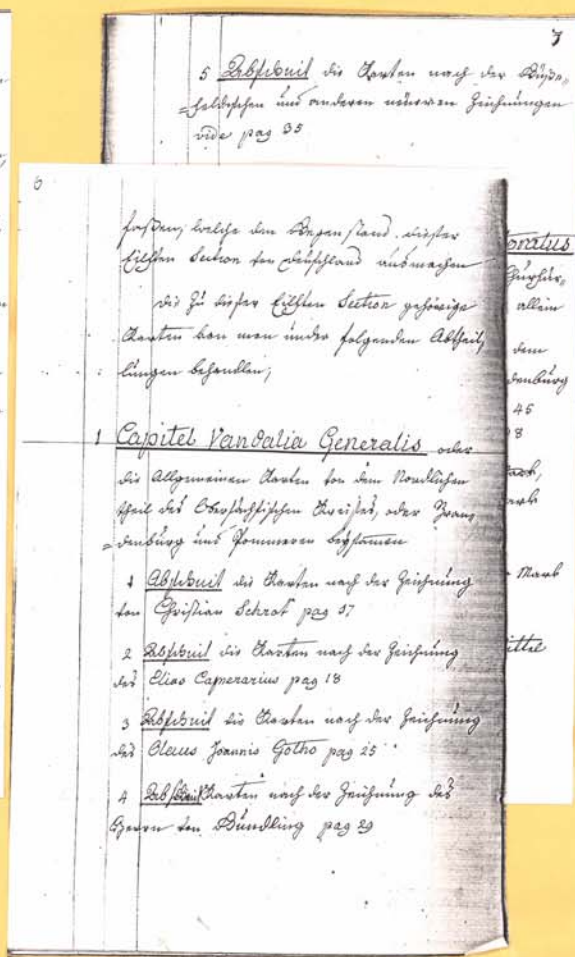 7
5 Abschnit die Karten nach der Büsche,,
=feldischen und anderen neüeren Zeichnungen
vide pag 35
6
faßen, welche den Gegenstand dießer
Eilften Section von Deüschland ausmachen
die zu dießer Eilften Section gehörige
Karten kan man under folgenden Abtheil,,
lungen behandlen,
1 Capitel Vandalia Generalis oder
die Allgemeinen Karten von dem Nordlichen
theil des Obersächsischen Kreißes, oder Bran,,
=denbürg und Pommeren beysamen
1 Abschnit die Karten nach der Zeichnung
von Christian Schrot pag 17
2 Abschnit die Karten nach der Zeichnung
des Elias Camerarius pag 18
3 Abschnit die Karten nach der Zeichnung
des Olaus Joannis Gotho pag 25
4 Abschnit Karten nach der Zeichnung des
Herrn von Gündling pag 29
onatus
allein
dem
denbürg
45
8
Mark
ittel